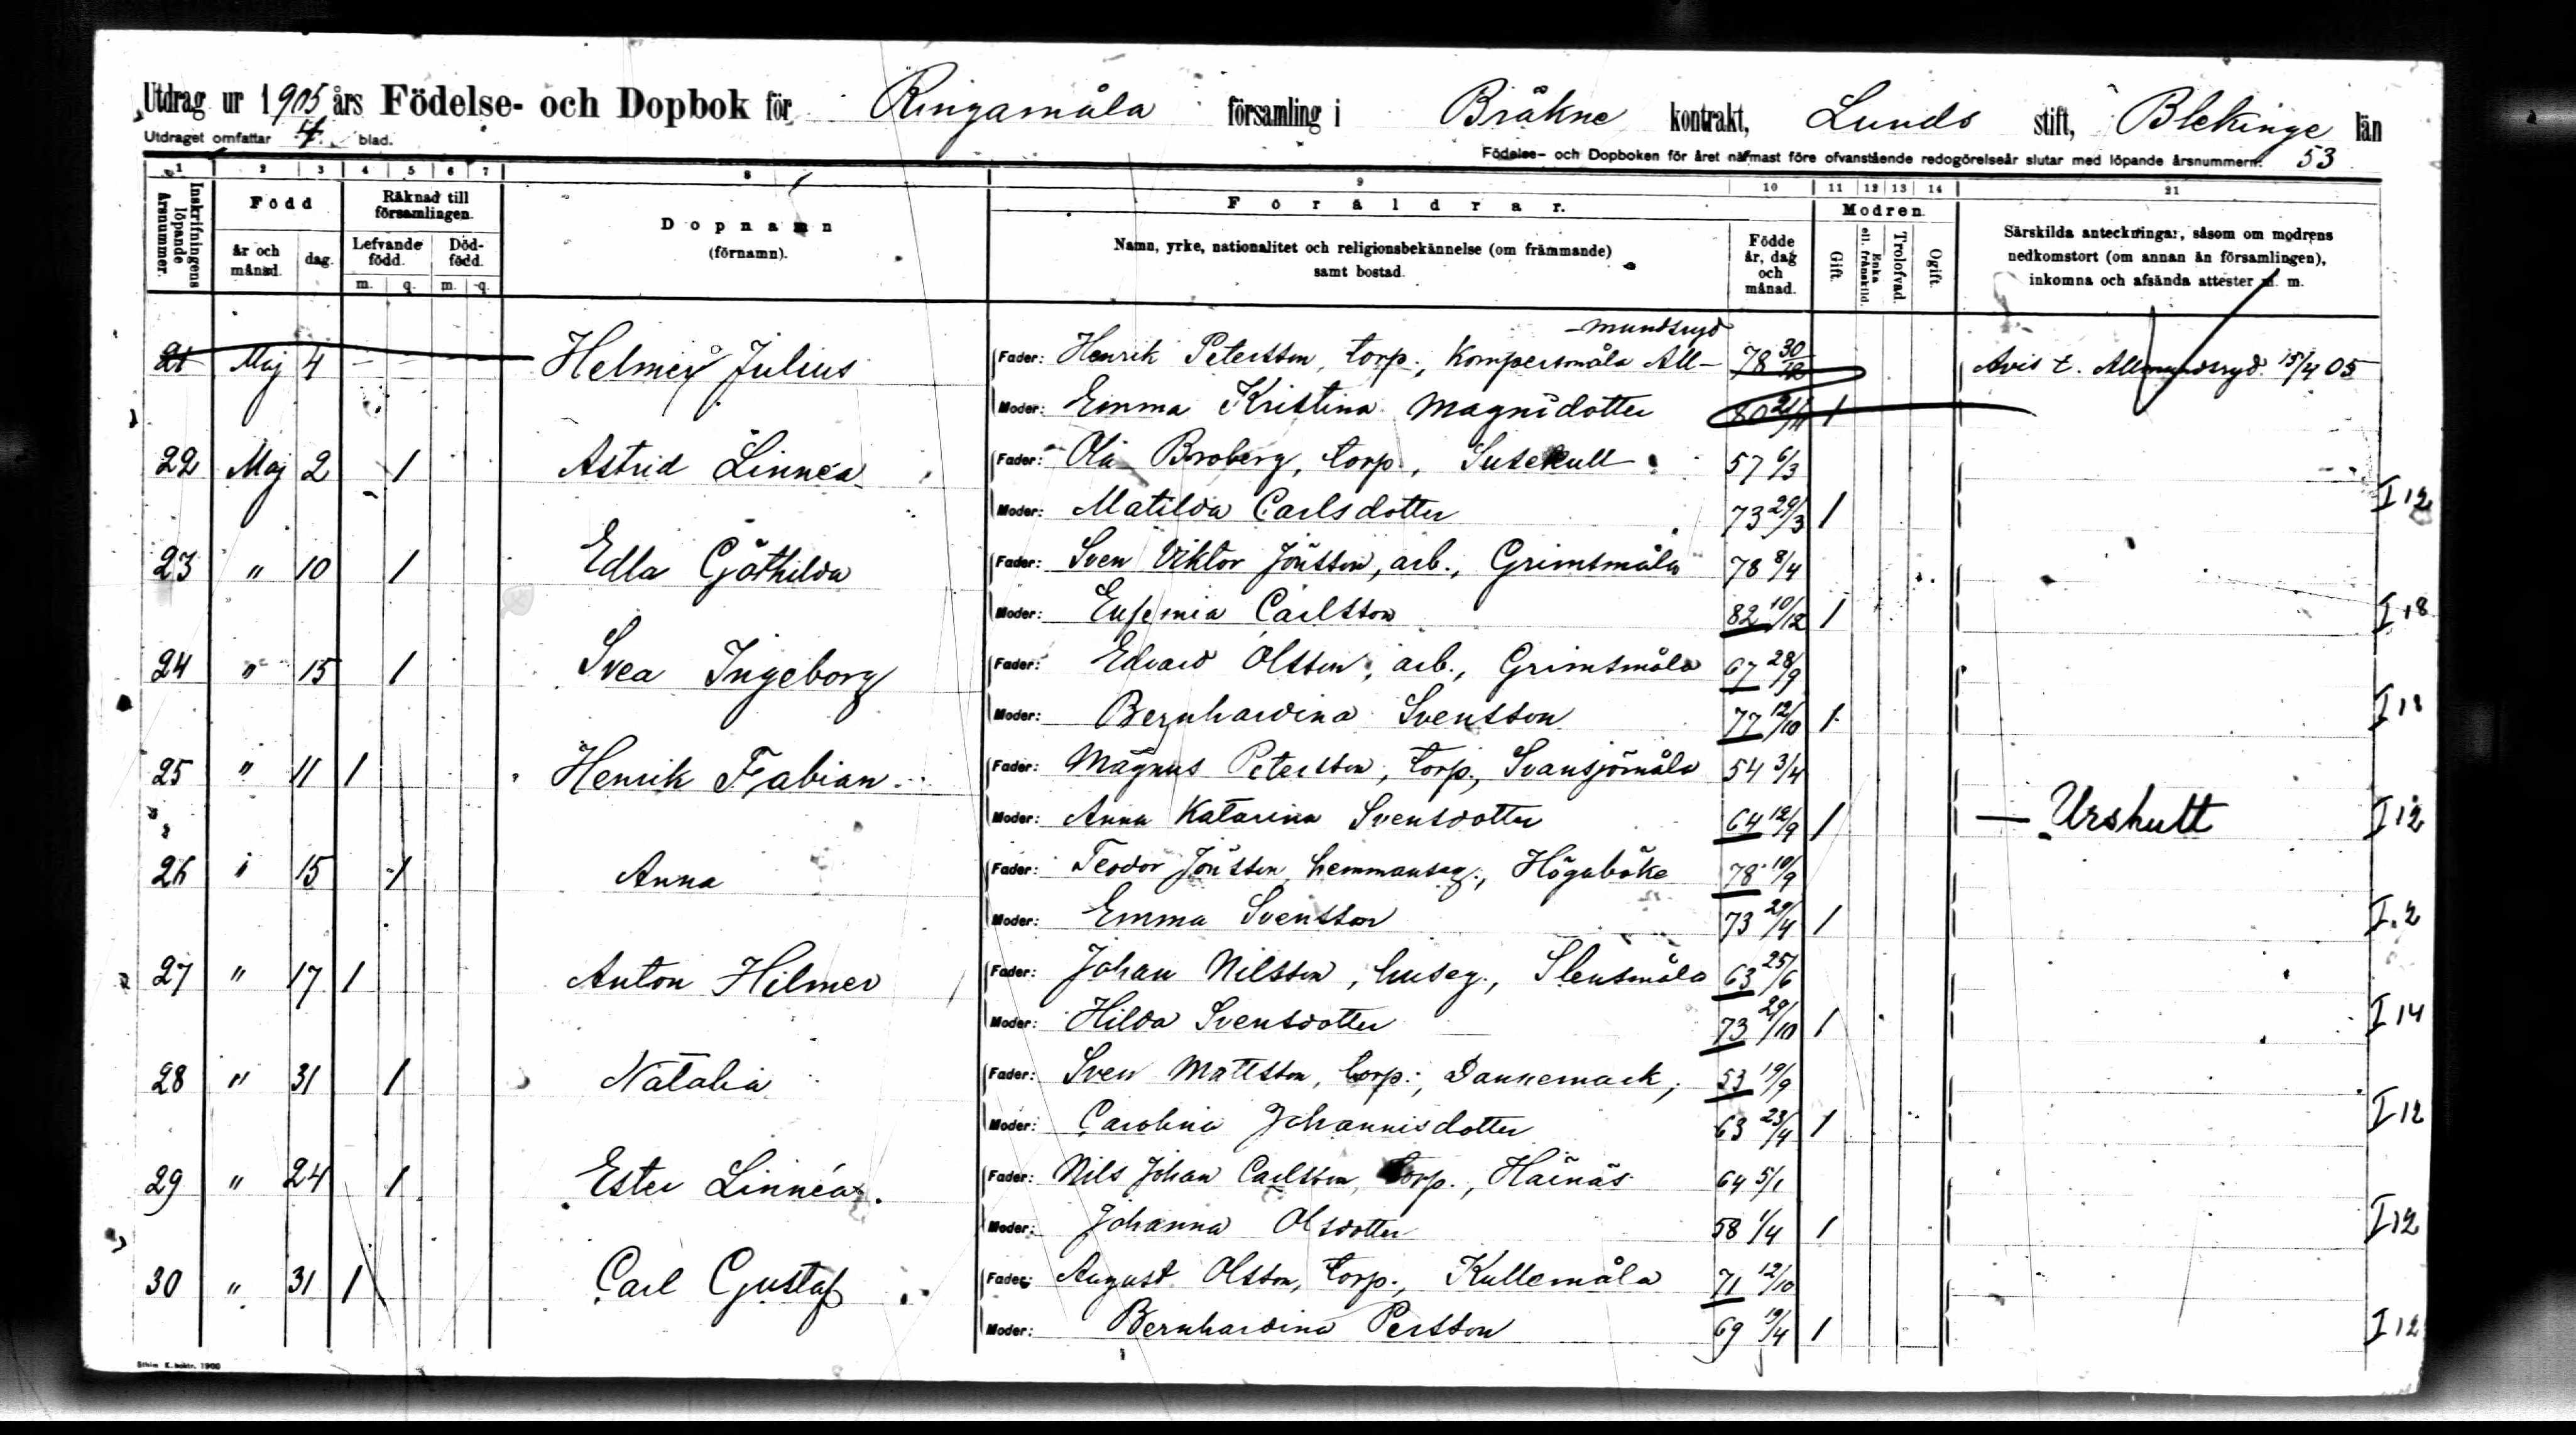 Utdrag ur 1905 års Födelse- och Dopbok för Ringamåla församling i Bräkne kontrakt, Lunds stift, Blekinge län
Utdraget omfattar 4 blad.
Födelse- och Dopboken för året närmast före ofvanstående redogörelseår slutar med löpande årsnummern: 53
1 2 3 4 5 6 7 8 9 10 11 12 13 14 21
Inskrifningens löpande årsnummer.
Född
år och månad.
dag.
Räknad till församlingen.
Lefvande född.
Död-född.
m. q. m. q.
Dopnamn
(förnamn).
Föräldrar.
Namn, yrke, nationalitet och religionsbekännelse (om främmande)
samt bostad.
Födde år, dag och månad.
Modren.
Gift.
Enka ell. frånskild.
Trolofvad.
Ogift.
Särskilda anteckningar, såsom om modrens
nedkomstort (om annan än församlingen),
inkomna och afsända attester m. m.
-mundsryd
21 Maj 4 - - - Helmer Julius Fader: Henrik Petersson, torp., Kompersmåla All- 78 30/12 Avis t. Allmundsryd. 15/4 05
Moder: Emma Kristina Magnidotter 80 21/11 1
22 Maj 2 1 Astrid Linnéa Fader: Ola Broberg, torp., Susekull 57 6/3
Moder: Matilda Carlsdotter 73 29/3 1 I 12
23 " 10 1 Edla Göthilda Fader: Sven Viktor Jönsson, arb., Grimsmåla 78 8/4
Moder: Eufemia Carlsson 82 10/12 1 I 18
24 " 15 1 Svea Ingeborg Fader: Edvard Olsson, arb., Grimsmåla 67 28/9
Moder: Bernhardina Svensson 77 12/10 1 I 18
25 " 11 1 Henrik Fabian Fader: Magnus Petersson, torp., Svansjömåla 54 3/4
Moder: Anna Katarina Svensdotter 64 12/9 1 — Urshult I 12
26 " 15 1 Anna Fader: Teodor Jönsson, hemmanseg., Högaböke 78 10/9
Moder: Emma Svensson 73 29/4 1 I. 2
27 " 17 1 Anton Hilmer Fader: Johan Nilsson, huseg., Slensmåla 63 25/6
Moder: Hilda Svensdotter 73 29/10 1 I 14
28 " 31 1 Natalia Fader: Sven Mattsson, torp., Dannemark, 53 19/9
Moder: Carolina Johannisdotter 63 23/4 1 I 12
29 " 24 1 Ester Linnéa. Fader: Nils Johan Carlsson, torp., Harnäs 64 5/1
Moder: Johanna Olsdotter 58 1/4 1 I 12
30 " 31 1 Carl Gustaf Fader: August Olsson, torp., Kullemåla 71 12/10
Moder: Bernhardina Persson 69 19/4 1 I 12
Sthlm K. boktr. 1900